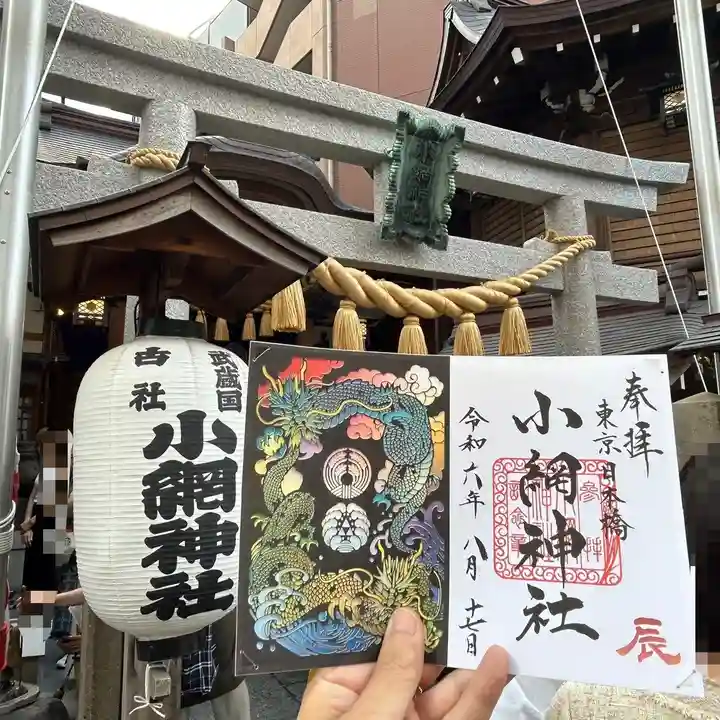 小網神社
武蔵国
古社
小網神社
奉拝
東京日本橋
小網神社
令和六年 八月 十七日
辰